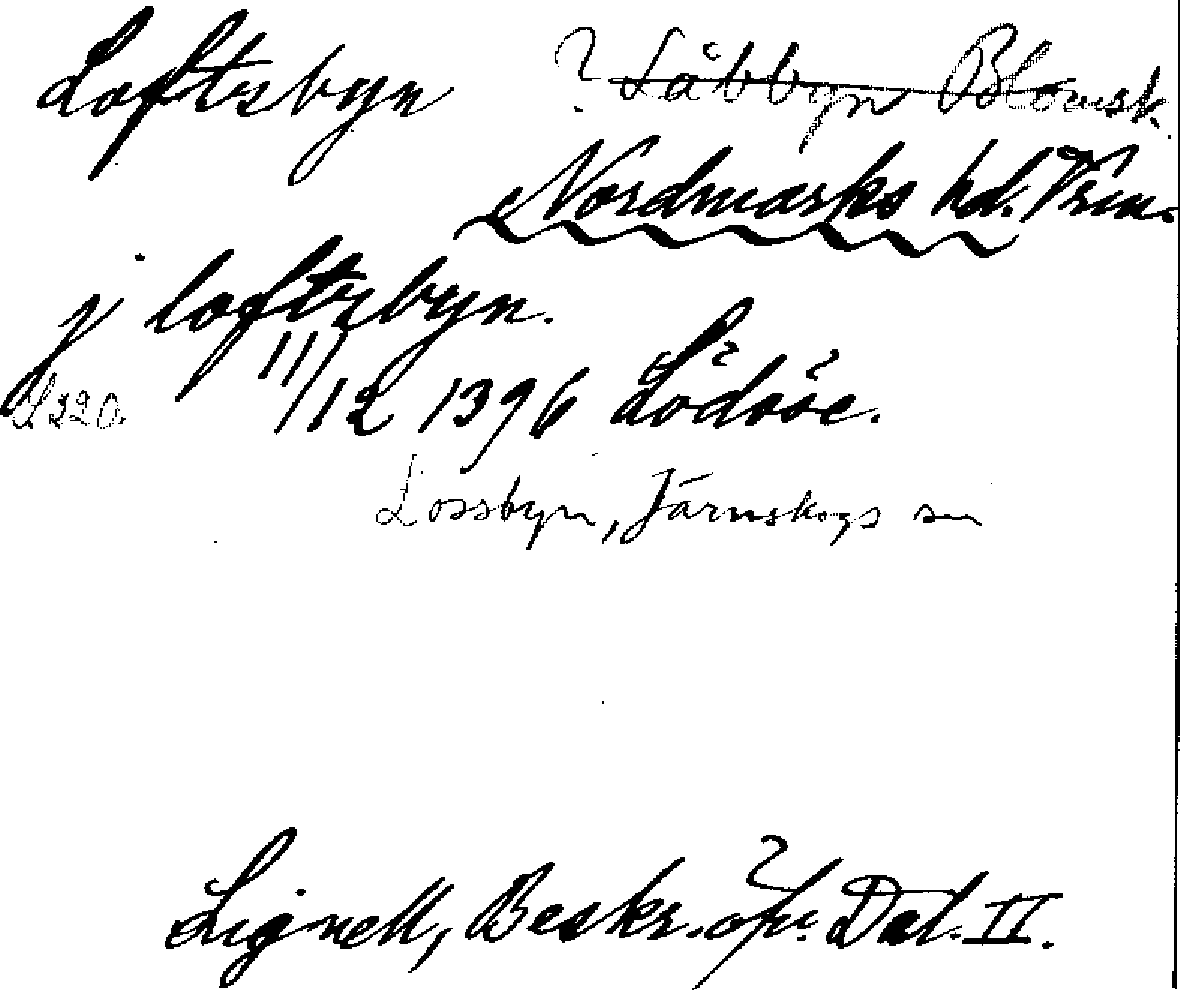 Loftsbyn ? Låbbyn Blomsk.
Nordmarks hd. Vrm.
j loftsbyn.
11/12 1396 Lödöse.
s. 220.
Lossbyn, Järnskogs sn
Lignell, Beskr. öfv. Dal. II.